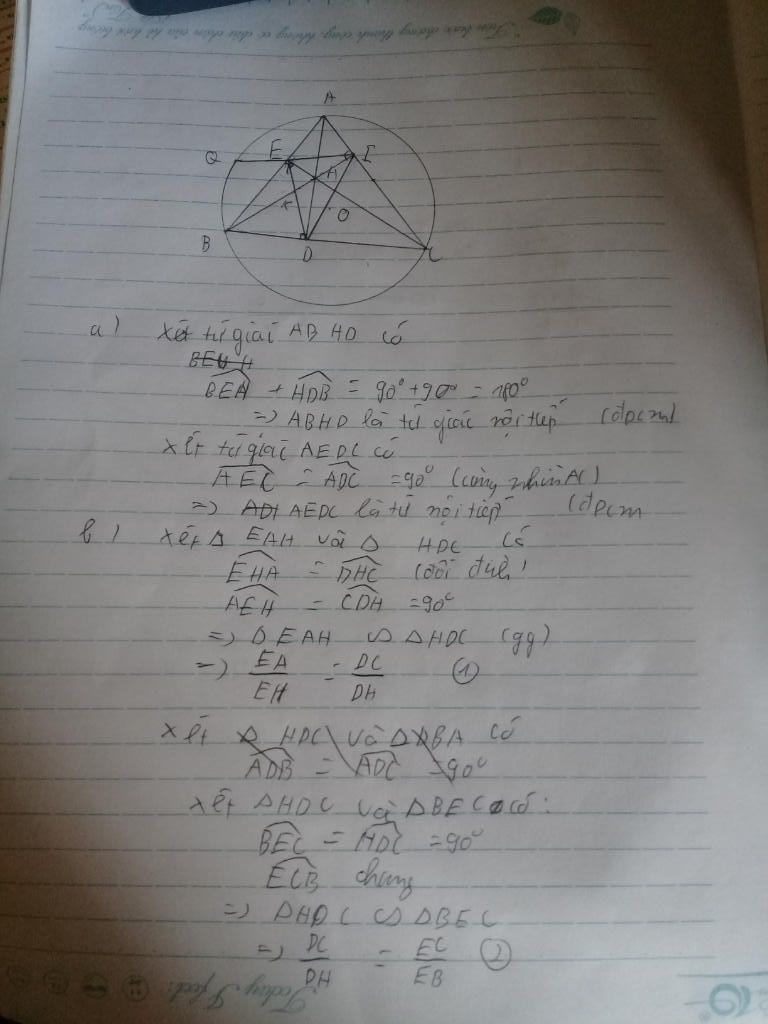 A
Q E I
H
K O
B D C
a) xét tứ giác ABHD có
BEH H
BEA + HDB = 90° + 90° = 180°
=> ABHD là tứ giác nội tiếp (đpcm)
xét tứ giác AEDC có
AEC = ADC = 90° (cùng nhìn AC)
=> ADI AEDC là tứ nội tiếp (đpcm
b) xét Δ EAH và Δ HDC có
EHA = DHC (đối đỉnh)
AEH = CDH = 90°
=> Δ EAH ∽ Δ HDC (gg)
=> EA/EH = DC/DH ①
xét Δ HDC và Δ DBA có
ADB = ADC = 90°
xét ΔHDC và ΔBEC có:
BEC = HDC = 90°
ECB chung
=> ΔHDC ∽ ΔBEC
=> DC/DH = EC/EB ②
Today I feel: